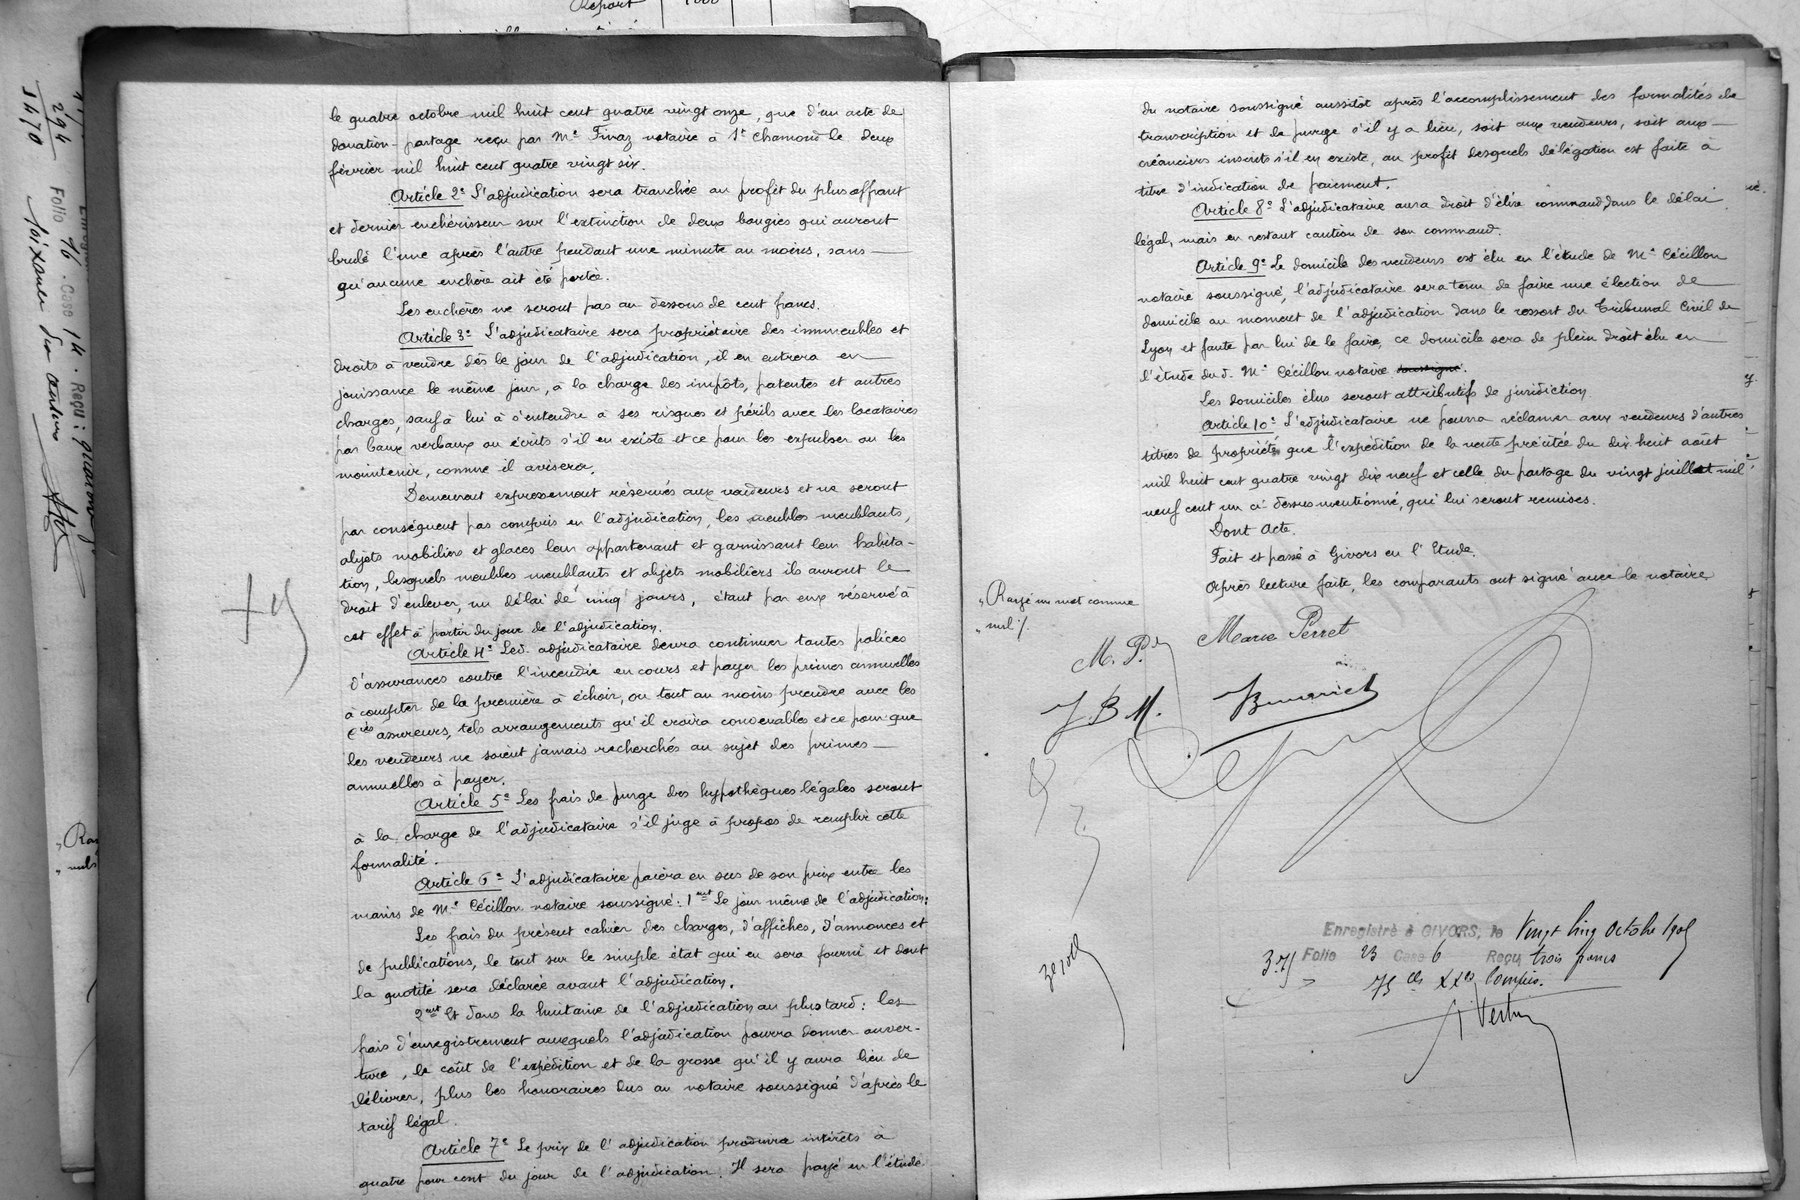 Report 1000
le quatre octobre mil huit cent quatre vingt onze, que d'un acte de
donation-partage reçu par Me Finaz notaire à St Chamond le deux
février mil huit cent quatre vingt six.
Article 2e L'adjudication sera tranchée au profit du plus offrant
et dernier enchérisseur sur l'extinction de deux bougies qui auront
brulé l'une après l'autre pendant une minute au moins, sans
qu'aucune enchère ait été portée.
Les enchères ne seront pas au dessous de cent francs.
Article 3e L'adjudicataire sera propriétaire des immeubles et
droits à vendre dès le jour de l'adjudication, il en entrera en
jouissance le même jour, à la charge des impôts, patentes et autres
charges, sauf à lui à s'entendre à ses risques et périls avec les locataires
par baux verbaux ou écrits s'il en existe et ce pour les expulser ou les
maintenir, comme il avisera.
Demeurent expressement réservés aux vendeurs et ne seront
par conséquent pas compris en l'adjudication, les meubles meublants,
objets mobiliers et glaces leur appartenant et garnissant leur habita-
tion, lesquels meubles meublants et objets mobiliers ils auront le
droit d'enlever, un délai de cinq jours, étant par eux réservé à
cet effet à partir du jour de l'adjudication.
Article 4e Led. adjudicataire devra continuer toutes polices
d'assurances contre l'incendie en cours et payer les primes annuelles
à compter de la première à échoir, ou tout au moins prendre avec les
Cies assureurs, tels arrangements qu'il croira convenables et ce pour que
les vendeurs ne soient jamais recherchés au sujet des primes
annuelles à payer.
Article 5e Les frais de purge des hypothèques légales seront
à la charge de l'adjudicataire s'il juge à propos de remplir cette
formalité.
Article 6e L'adjudicataire paiera en sus de son prix entre les
mains de Me Cécillon notaire soussigné: 1ent Le jour même de l'adjudication:
Les frais du présent cahier des charges, d'affiches, d'annonces et
de publications, le tout sur le simple état qui en sera fourni et dont
la quotité sera déclarée avant l'adjudication.
2ent Et dans la huitaine de l'adjudication au plus tard: les
frais d'enregistrement auxquels l'adjudication pourra donner ouver-
ture, le coût de l'expédition et de la grosse qu'il y aura lieu de
délivrer, plus les honoraires dus au notaire soussigné d'après le
tarif légal.
Article 7e Le prix de l'adjudication produira intérêts à
quatre pour cent du jour de l'adjudication. Il sera payé en l'étude
du notaire soussigné aussitôt après l'accomplissement des formalités de
transcription et de purge s'il y a lieu, soit aux vendeurs, soit aux
créanciers inscrits s'il en existe, au profit desquels délégation est faite à
titre d'indication de paiement.
Article 8e L'adjudicataire aura droit d'élire command dans le délai
légal, mais en restant caution de son command.
Article 9e Le domicile des vendeurs est élu en l'étude de Me Cécillon
notaire soussigné, l'adjudicataire sera tenu de faire une élection de
domicile au moment de l'adjudication dans le ressort du Tribunal Civil de
Lyon et faute par lui de le faire, ce domicile sera de plein droit élu en
l'étude du d. Me Cécillon notaire soussigné.
Les domiciles élus seront attributifs de juridiction
Article 10e L'adjudicataire ne pourra réclamer aux vendeurs d'autres
titres de propriété que l'expédition de la vente précitée du dix huit août
mil huit cent quatre vingt dix neuf et celle du partage du vingt juillet mil
neuf cent un ci-dessus mentionné, qui lui seront remises.
Dont Acte.
Fait et passé à Givors en l'Etude.
Après lecture faite, les comparants ont signé avec le notaire
"Rayé un mot comme
"nul"/
M. P.
Marie Perret
J B M.
Enregistré à GIVORS, le Vingt cinq Octobre 1905
Folio 23 Case 6 Reçu trois francs
3.75
75 ces XXes Compris.
294
3470
Folio 76 Case 14 Reçu: